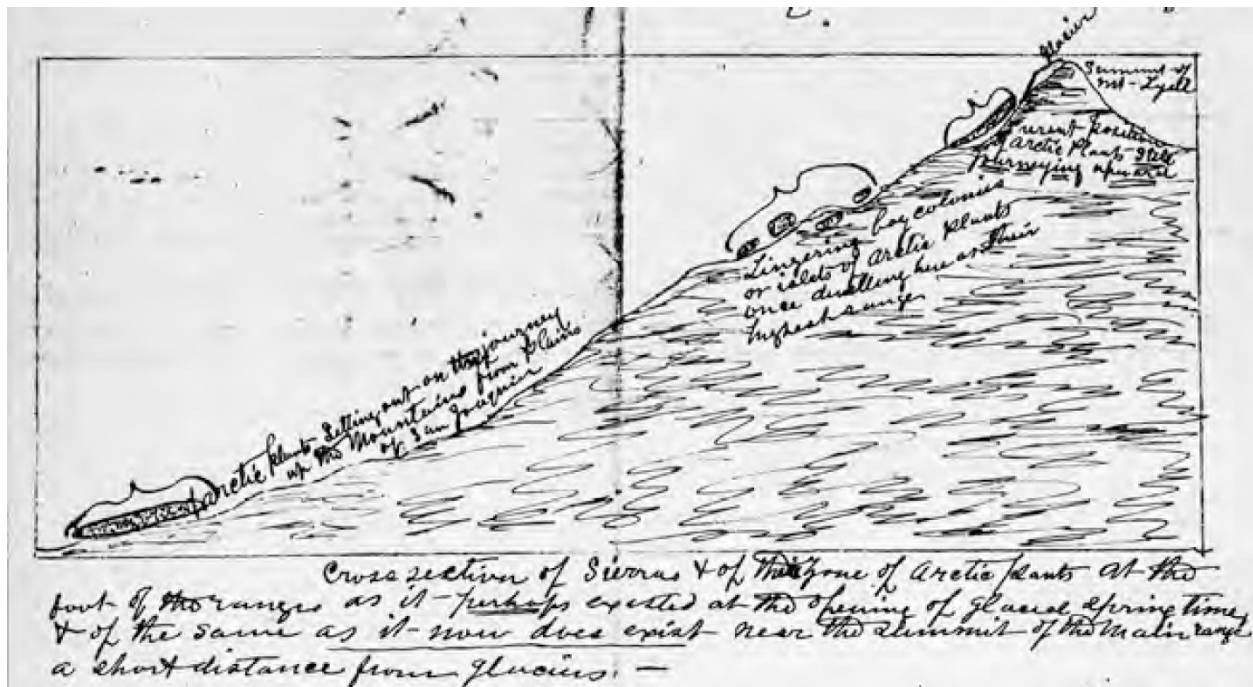 Glacier
Summit of
Mt - Lyell
Present position
of Arctic plants still
journeying upward
Lingering bog colonies
or islets of Arctic plants
once dwelling here as their
highest range
Arctic plants Setting out on the journey
up the Mountains from plains
of San Joaquin
Cross section of Sierras & of the zone of Arctic plants at the
foot of the ranges as it perhaps existed at the opening of glacial springtime
& of the same as it now does exist near the summit of the main range
a short distance from glaciers. —